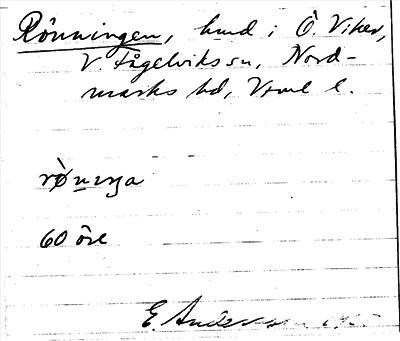 Rönningen, hmd i Ö. Viker,
V. Fågelviks sn, Nord-
marks hd, Vrml l.
rø̀nıŋa
60 öre
E. Andersson